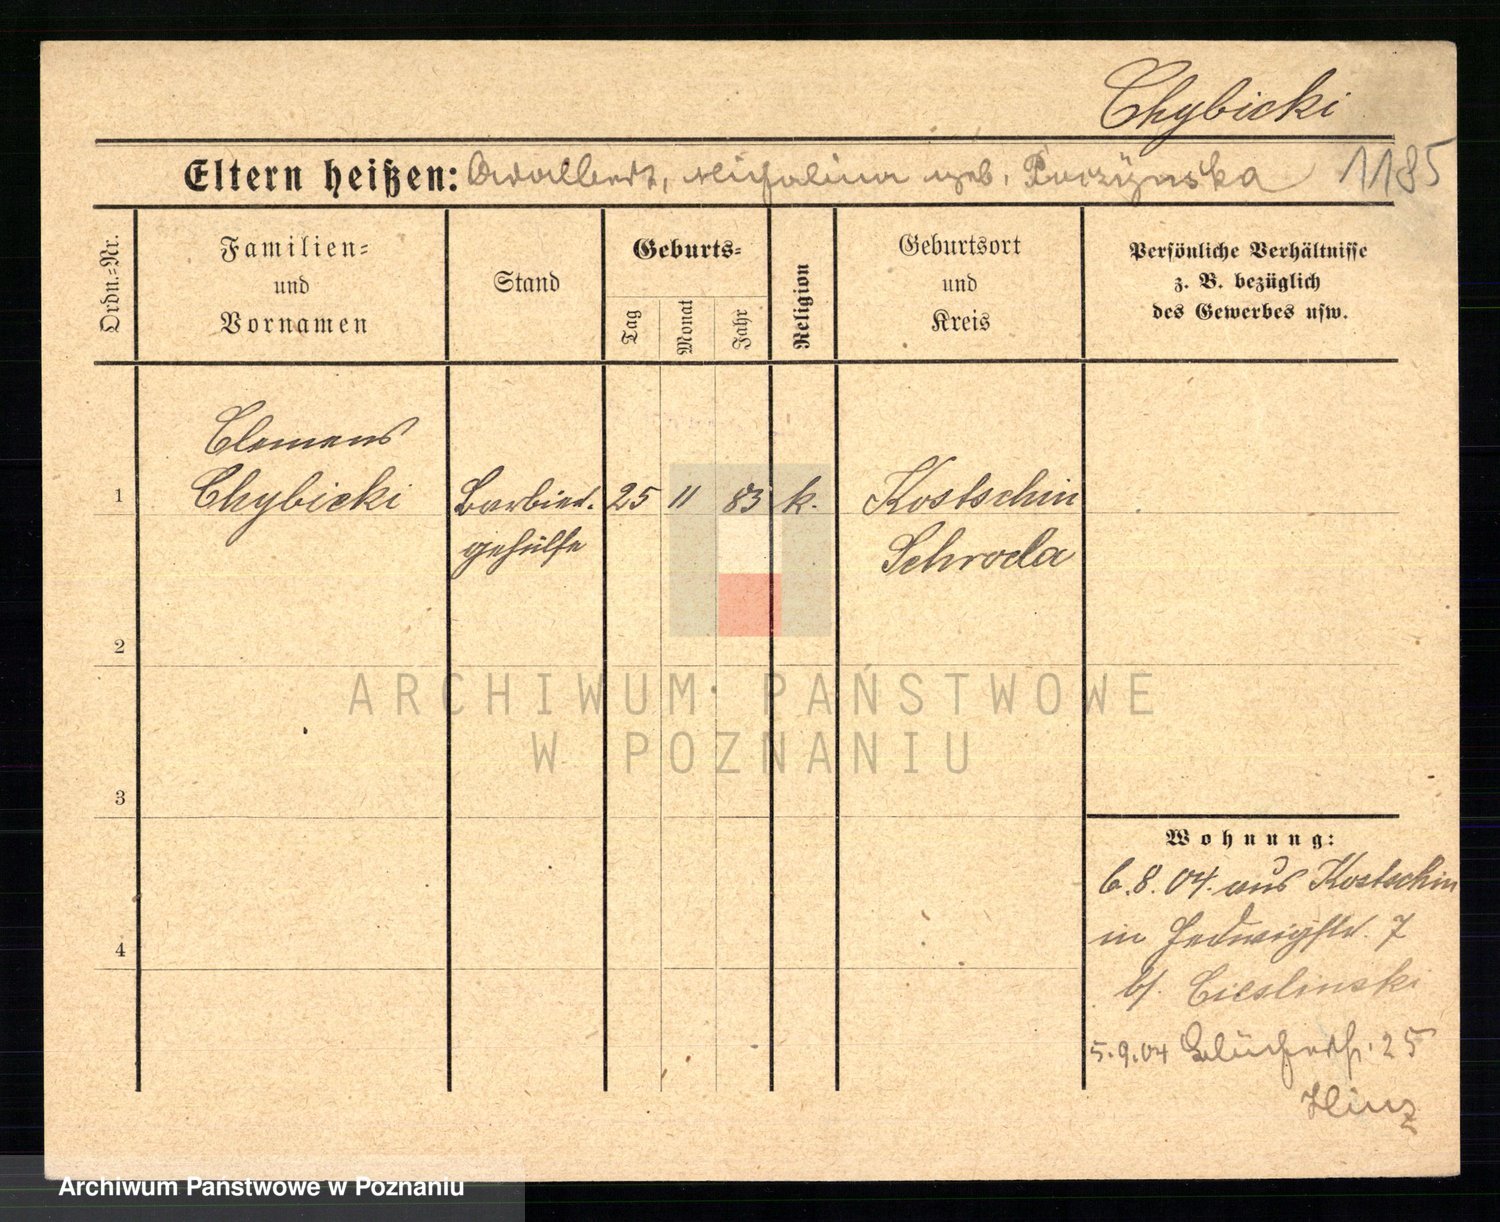 Chybicki
Eltern heißen: Adalbert, Michalina geb. 1185
Ordn.=Nr.
Familien=
und
Vornamen
Stand
Geburts=
Tag
Monat
Jahr
Religion
Geburtsort
und
Kreis
Persönliche Verhältnisse
z. B. bezüglich
des Gewerbes usw.
Clemens
1 Chybicki Barbier. 25 11 83 k. Kostschin
gehülfe Schroda
2
ARCHIWUM PAŃSTWOWE
W POZNANIU
3
Wohnung:
6.8.04. aus Kostschin
in Hedwigstr. 7
4
b/. Cieslinski
5.9.04 Blücherstr. 25
Hinz
Archiwum Państwowe w Poznaniu